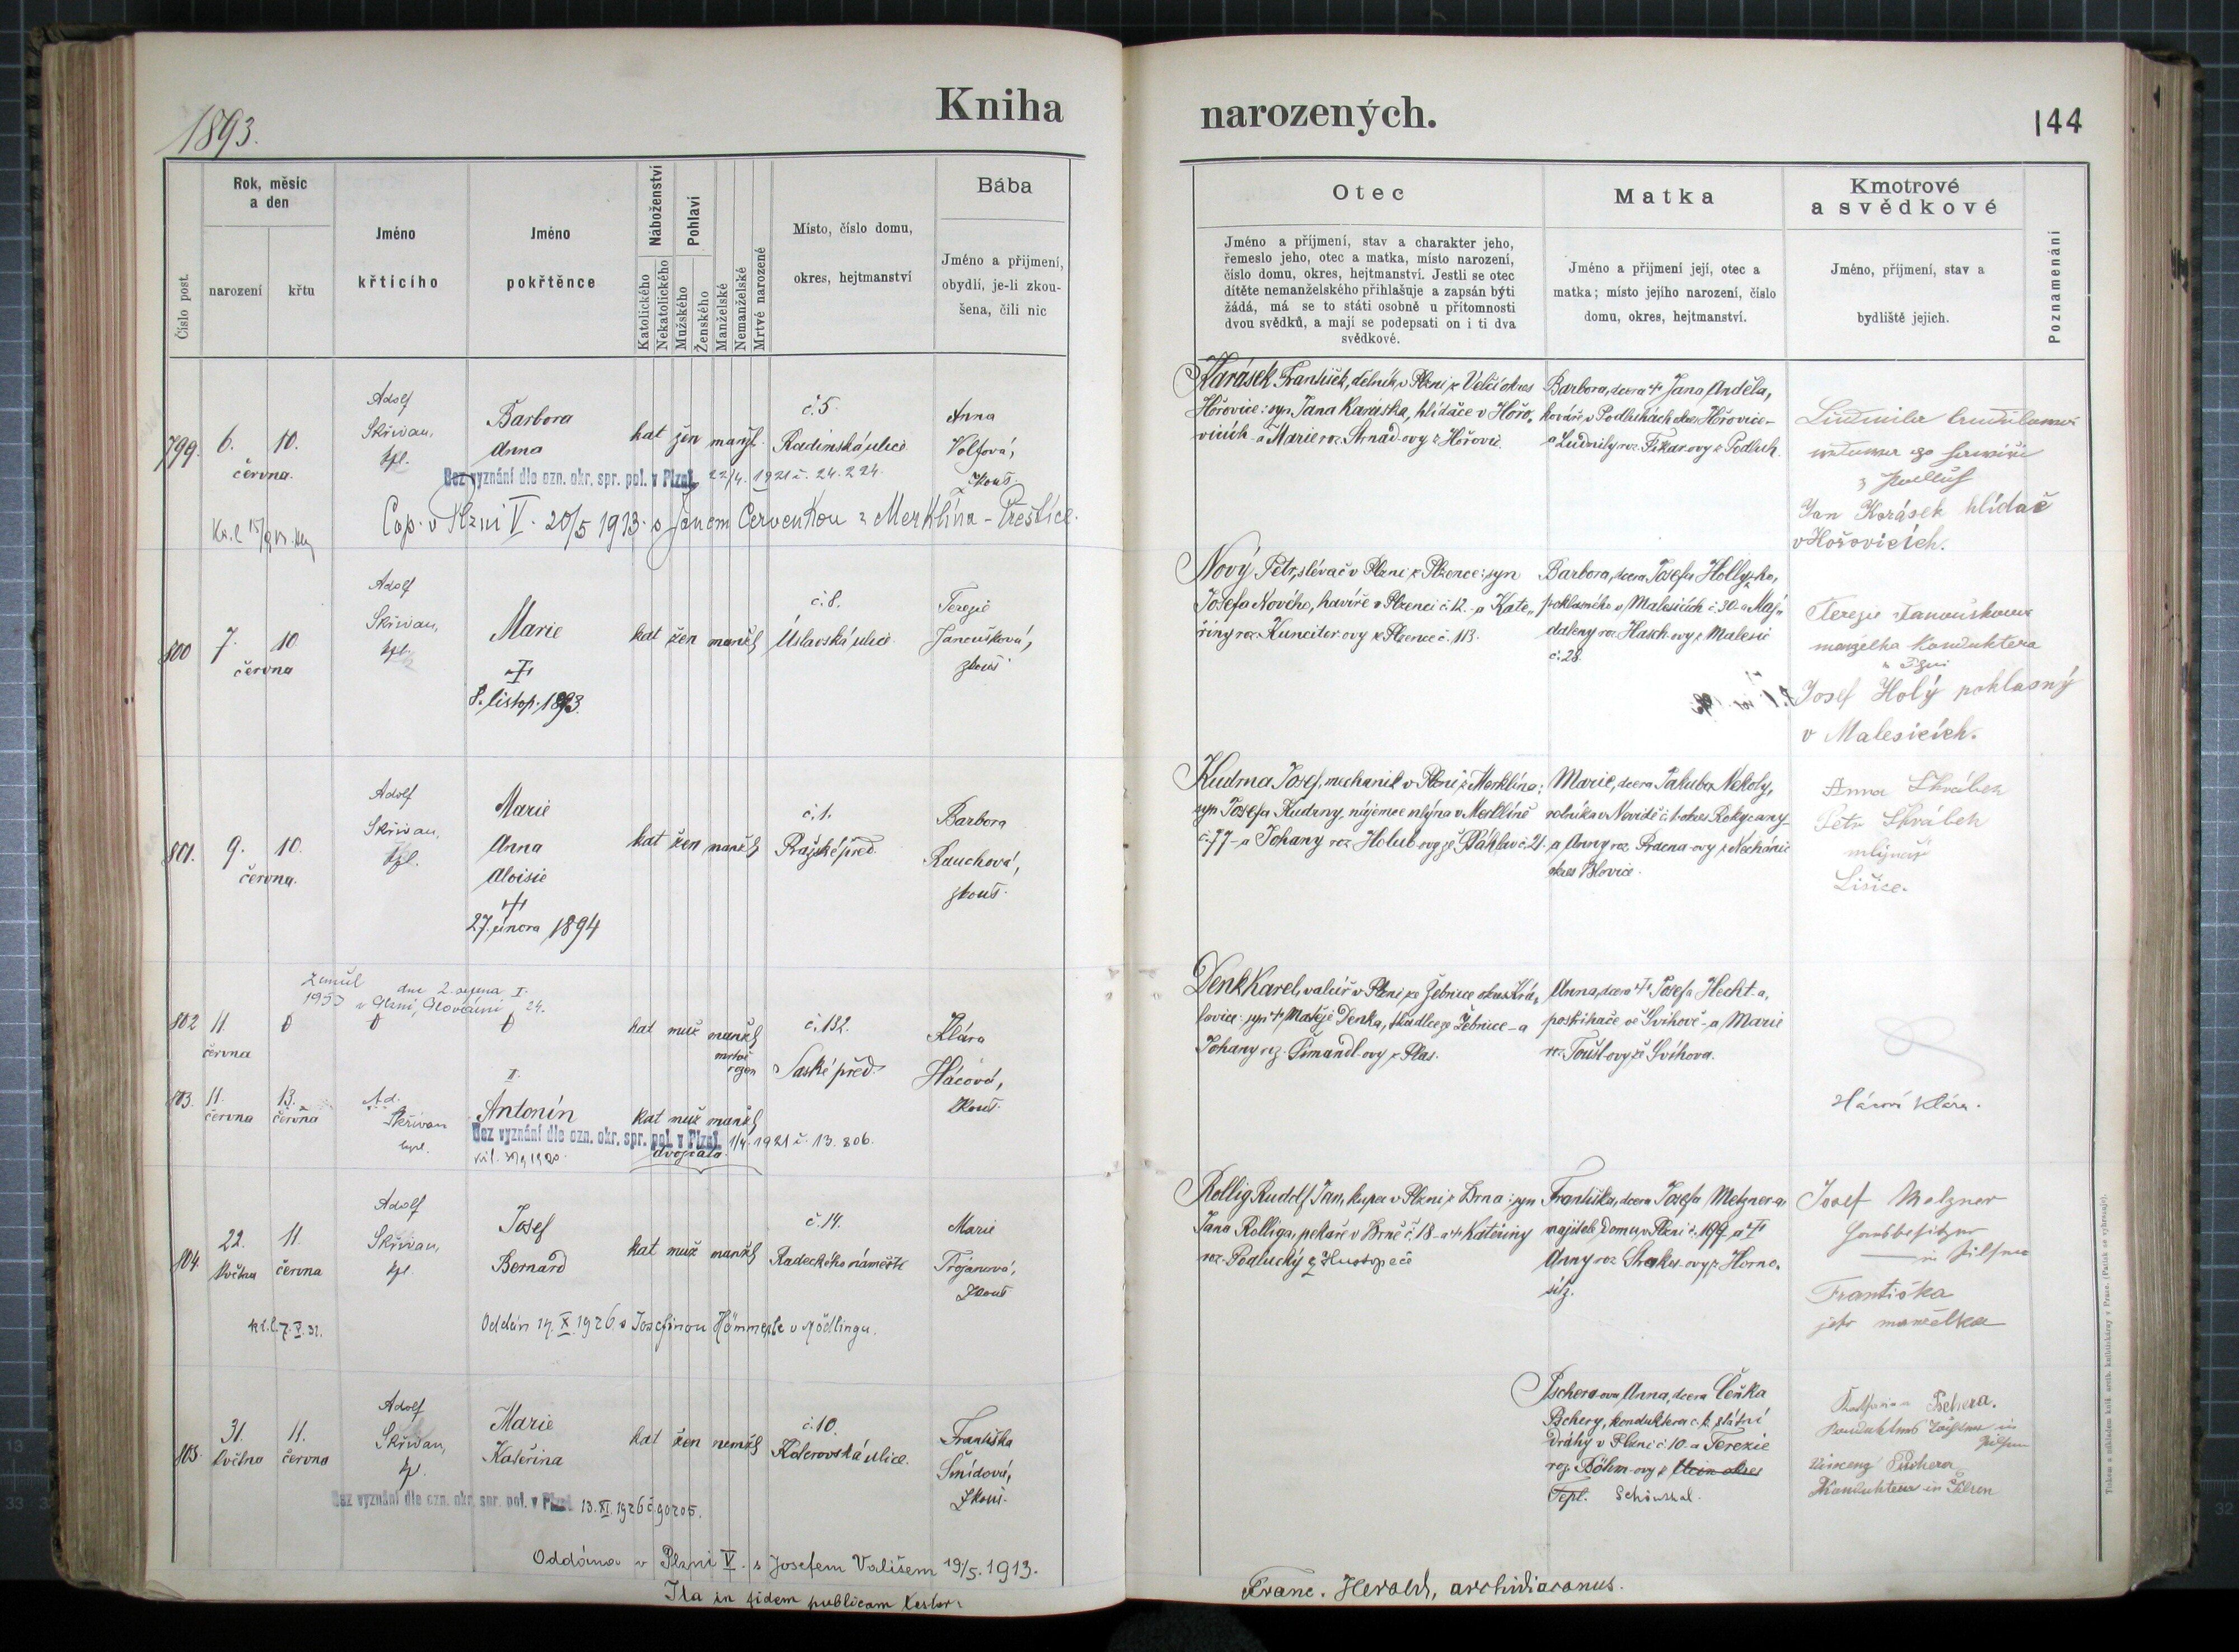 1893.
Kniha
narozených.
144
Číslo post.
Rok, měsíc
a den
narození
křtu
Jméno
křticího
Jméno
pokřtěnce
Náboženství
Katolického
Nekatolického
Pohlaví
Mužského
Ženského
Manželské
Nemanželské
Mrtvé narozené
Místo, číslo domu,
okres, hejtmanství
Bába
Jméno a příjmení,
obydlí, je-li zkou-
šena, čili nic
Otec
Jméno a příjmení, stav a charakter jeho,
řemeslo jeho, otec a matka, místo narození,
číslo domu, okres, hejtmanství. Jestli se otec
dítěte nemanželského přihlašuje a zapsán býti
žádá, má se to státi osobně u přítomnosti
dvou svědků, a mají se podepsati on i ti dva
svědkové.
Matka
Jméno a příjmení její, otec a
matka; místo jejího narození, číslo
domu, okres, hejtmanství.
Kmotrové
a svědkové
Jméno, příjmení, stav a
bydliště jejich.
Poznamenání
799.
6.
10.
června.
Adolf
Skřivan,
kpl.
Barbora
Anna
kat žen manžl.
č. 5.
Radimská ulice
Anna
Volfová,
zkouš.
Bez vyznání dle ozn. okr. spr. pol. v Plzni 22/4. 1921 č. 24.224
Cop. v Plzni V. 20/5 1913 s Janem Červenkou z Merklína - Přeštice.
Karásek František, dělník v Plzni, z Velčí okres
Hořovice: syn Jana Karáska, hlídače v Hořo-
vicích a Marie roz. Arnad-ovy z Hořovic.
Barbora, dcera † Jana Anděla,
kováře v Podluhách okres Hořovice -
a Ludmily roz. Fikar-ovy z Podluh.
Ludmila
Jan Karásek hlídač
v Hořovicích.
800
7.
10.
června
Adolf
Skřivan,
kpl.
Marie
†
8. listop. 1893.
kat žen manžl
č. 8.
Úslavská ulice.
Terezie
Janoušková,
zkouš.
Nový Petr, slévač v Plzni z Plzence: syn
Josefa Nového, havíře v Plzenci č. 12. - a Kate-
řiny roz. Kunciter-ovy z Plzence č. 113.
Barbora, dcera Josefa Hollyho,
poklasného v Malesicích č. 30 - a Maj-
daleny roz. Hasch-ovy z Malesic
č. 28.
Terezie Janoušková
manželka konduktera
v Plzni
Josef Holý poklasný
v Malesicích.
801.
9.
10.
června.
Adolf
Skřivan,
kpl.
Marie
Anna
Aloisie
†
27. února 1894
kat žen manžl
č. 1.
Pražské před.
Barbora
Rauchová,
zkouš.
Kudrna Josef, mechanik v Plzni z Merklína;
syn Josefa Kudrny, nájemce mlýna v Merklíně
č. 77 - a Johany roz. Holub-ovy ze Štáhlav č. 21.
Marie, dcera Jakuba Nekoly,
rolníka v Nevidě č. 1. okres Rokycany -
a Anny roz. Prdena-ovy z Nechánic
okres Blovice.
Anna Škrábek
Petr Škrábek
mlynář
Lišice.
zemřel dne 2. srpna
1953 v Plzni, Slovany 24.
802
11.
června
kat muž manžl
mrtvě
rozen
č. 132.
Saské před.
Klára
Hácová,
Zkouš.
Denk Karel, valcíř v Plzni ze Žebnice okres Krá-
lovice: syn † Matěje Denka, tkadlce ze Žebnice - a
Johany roz. Šmandl-ovy z Plas.
Anna, dcera † Josefa Hecht-a,
postřihače ve Švihově - a Marie
roz. Toušl-ovy ze Švihova.
Hácová Klára.
803.
11.
června
13.
června
Ad.
Skřivan
kpl.
II.
Antonín
kat muž manžl
Bez vyznání dle ozn. okr. spr. pol. v Plzni 1/4. 1921 č. 13.806.
dvojčata.
804.
22.
května
11.
června
Adolf
Skřivan,
kpl.
Josef
Bernard
kat muž manžl
č. 14.
Radeckého náměstí
Marie
Trojanová,
Zkouš
7. V. 31.
Oddán 17. X. 1926 s Josefinou v Mödlingu.
Rollig Rudolf Jan, kupec v Plzni z Brna: syn
Jana Rolliga, pekaře v Brně č. 18 - a † Kateřiny
roz. Podlucký z Hustopeče
Františka, dcera Josefa Metzner-a,
majitele domu v Plzni č. 199 - a †
Anny roz. Strakes-ovy z Horno-
síz.
Josef Metzner
Hausbesitzer
in Pilsen
Františka
jeho manželka
805.
31.
května
11.
června
Adolf
Skřivan,
kpl.
Marie
Kateřina
kat žen nemžl
č. 10.
Koterovská ulice.
Františka
Šmídová,
Zkouš.
Bez vyznání dle ozn. okr. spr. pol. v Plzni 13. XI. 1926 č. 90205.
Pschera-ova Anna, dcera Čeňka
Pschery, konduktera c. k. státní
dráhy v Plzni č. 10. a Terezie
roz. Böhm-ovy z
Tepl. Schönthal.
Katharina Pschera.
Pilsen
Vincenz Pschera
Kondukteur in Pilsen
Oddána v Plzni V. s Josefem Vališem 19/5. 1913.
Ita in fidem publicam testor:
Franc. Herold, archidiaconus.